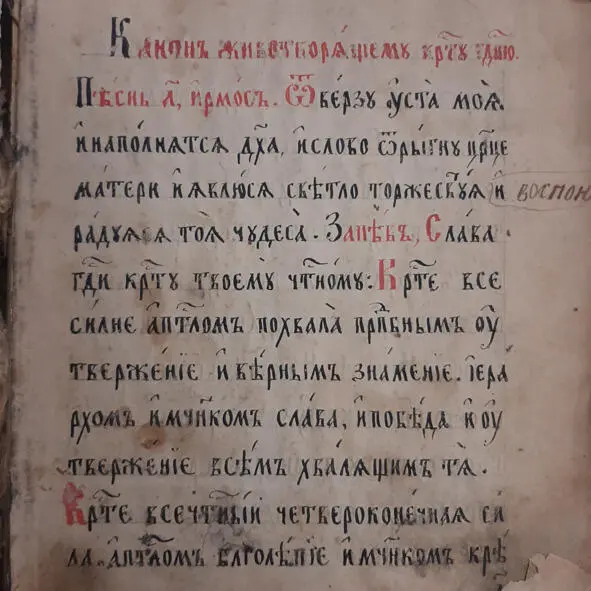 Канонъ животворѧщему крⷭ҇ту гдⷭ҇ню.
Пѣснь а҃, і҆рмосъ. Ѿверзу ᲂу҆ста моѧ̀
и҆наполнѧтсѧ дх҃а, и҆слово ѿрыгну црⷪ҇це
матери и҆ꙗвлюсѧ свѣтло торжествꙋѧ и҆
радуѧсѧ тоѧ̀ чудеса̀. Запѣвъ, Слава
гдⷭ҇и крⷭ҇ту твоемꙋ̀ чтⷭ҇ному: Крⷭ҇те все
силне а҆пⷭ҇тломъ похвала̀ прпⷣбнымъ ᲂу҆
твержѐніе и҆ вѣ́рнымъ знамение. Іера
рхомъ и҆мчн҃комъ слава, и҆побѣ́да и҆ ᲂу҆
твержѐніе всѣ́мъ хвалѧщимъ тѧ̀.
Крⷭ҇те всечтⷭ҇ны́й четвероконечнаѧ си
ла. а҆пⷭ҇тломъ бл҃голѣ́піе и҆мчн҃комъ крѣ́
воспон